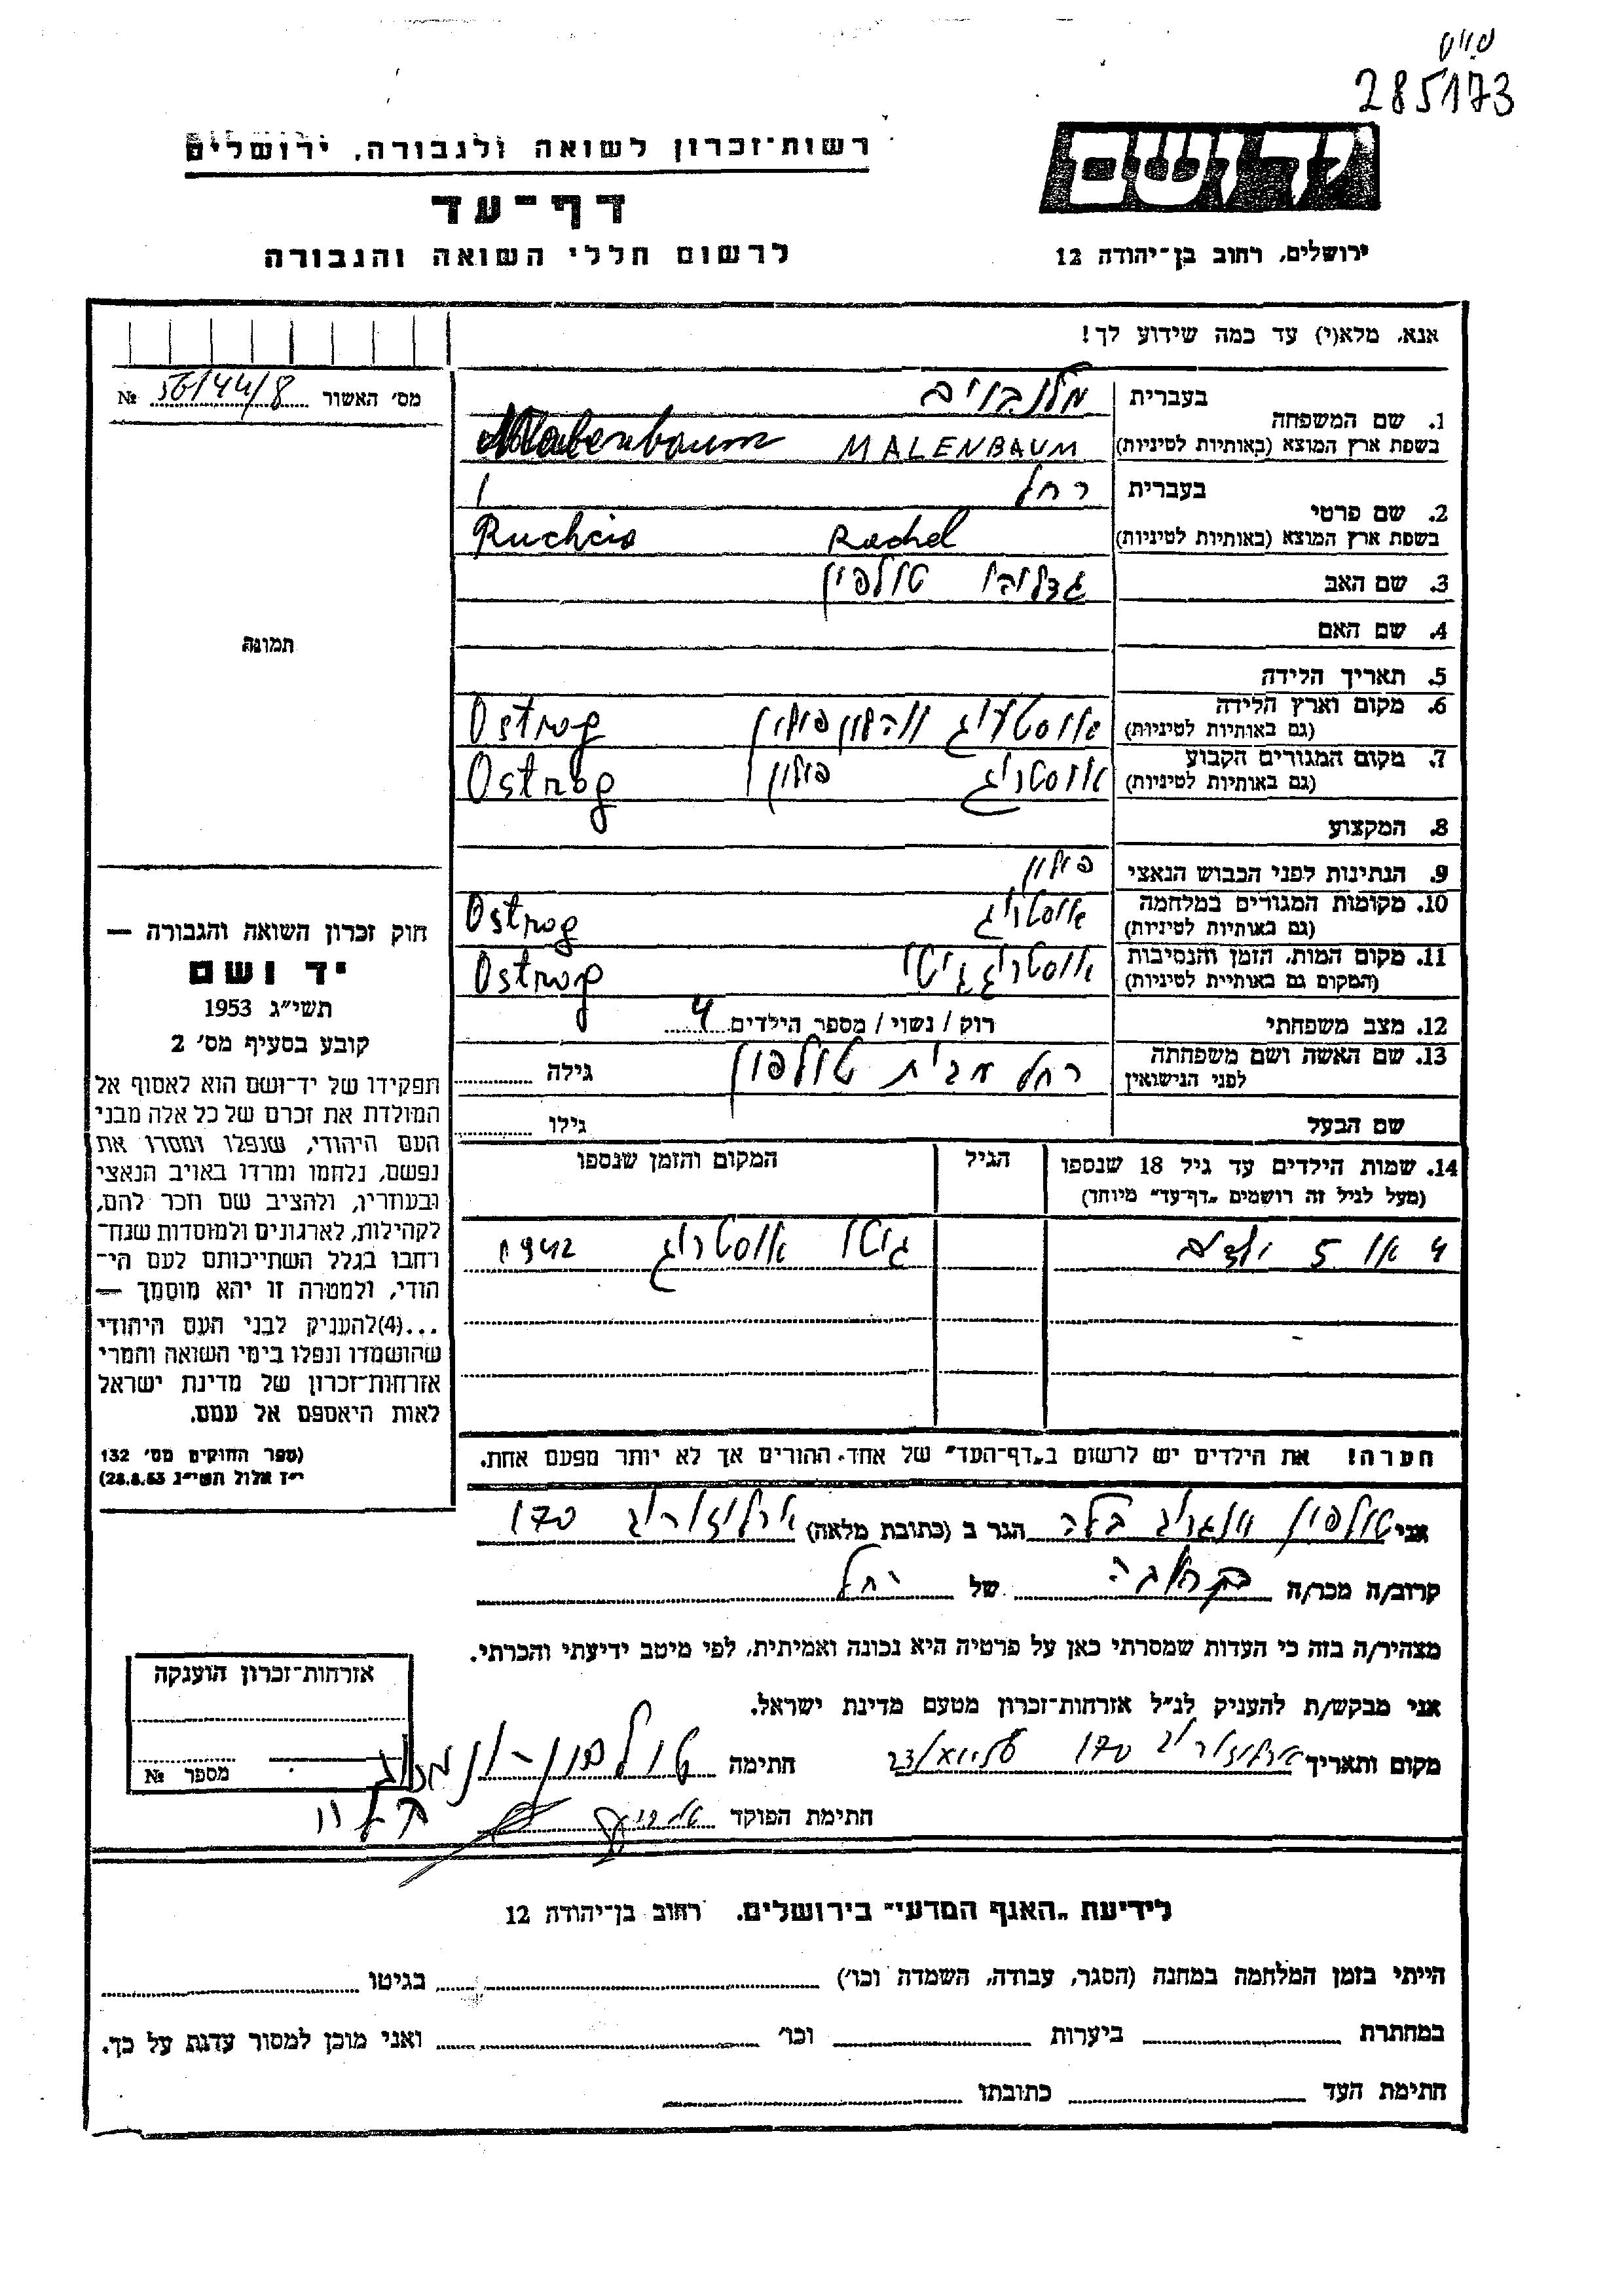 285173
רשות־זכרון לשואה ולגבורה, ירושלים
יד ושם
דף־עד
לרשום חללי השואה והגבורה
ירושלים, רחוב בן־יהודה 12
אנא, מלא(י) עד כמה שידוע לך!
מס׳ האשור № 56/44/8
1. שם המשפחה
בעברית מלנבוים
בשפת ארץ המוצא (באותיות לטיניות) MALENBAUM Malenbaum
2. שם פרטי
בעברית רחל
בשפת ארץ המוצא (באותיות לטיניות) Rachel Ruchcia
3. שם האב טולפין
4. שם האם
5. תאריך הלידה
6. מקום וארץ הלידה
(גם באותיות לטיניות) ווהלין פולין Ostrog
7. מקום המגורים הקבוע
(גם באותיות לטיניות) אוסטרוג פולין Ostrog
8. המקצוע
9. הנתינות לפני הכבוש הנאצי פולין
10. מקומות המגורים במלחמה
(גם באותיות לטיניות) אוסטרוג Ostrog
11. מקום המות, הזמן והנסיבות
(המקום גם באותיית לטיניות) אוסטרוג גיטו Ostrog
12. מצב משפחתי רוק / נשוי / מספר הילדים 4
13. שם האשה ושם משפחתה
לפני הנישואין רחל מבית טולפין גילה
שם הבעל גילו
תמונה
חוק זכרון השואה והגבורה —
יד ושם
תשי״ג 1953
קובע בסעיף מס׳ 2
תפקידו של יד־ושם הוא לאסוף אל
המולדת את זכרם של כל אלה מבני
העם היהודי, שנפלו ומסרו את
נפשם, נלחמו ומרדו באויב הנאצי
ובעוזריו, ולהציב שם וזכר להם,
לקהילות, לארגונים ולמוסדות שנח־
רחבו בגלל השתייכותם לעם הי־
הודי, ולמטרה זו יהא מוסמך —
...(4)להעניק לבני העם היהודי
שהושמדו ונפלו בימי השואה והמרי
אזרחות־זכרון של מדינת ישראל
לאות היאספם אל עמם.
(ספר החוקים מס׳ 132
י״ד אלול תשי״ג 28.8.53)
14. שמות הילדים עד גיל 18 שנספו הגיל המקום והזמן שנספו
(מעל לגיל זה רושמים „דף־עד״ מיוחד)
4 או 5 ילדים גיטו אוסטרוג 1942
הערה! את הילדים יש לרשום ב„דף־העד״ של אחד ההורים אך לא יותר מפעם אחת.
אני טולפין בלה הגר ב (כתובת מלאה) ארלוזורוב 170
קרוב/ה מכר/ה של רחל
מצהיר/ה בזה כי העדות שמסרתי כאן על פרטיה היא נכונה ואמיתית, לפי מיטב ידיעתי והכרתי.
אני מבקש/ת להעניק לנ״ל אזרחות־זכרון מטעם מדינת ישראל.
מקום ותאריך ארלוזורוב 170 חתימה טולפין
חתימת הפוקד
אזרחות־זכרון הוענקה
מספר №
לידיעת „האגף המדעי״ בירושלים. רחוב בן־יהודה 12
הייתי בזמן המלחמה במחנה (הסגר, עבודה, השמדה וכו׳) בגיטו
במחתרת ביערות וכו׳ ואני מוכן למסור עדות על כך.
חתימת העד כתובתו